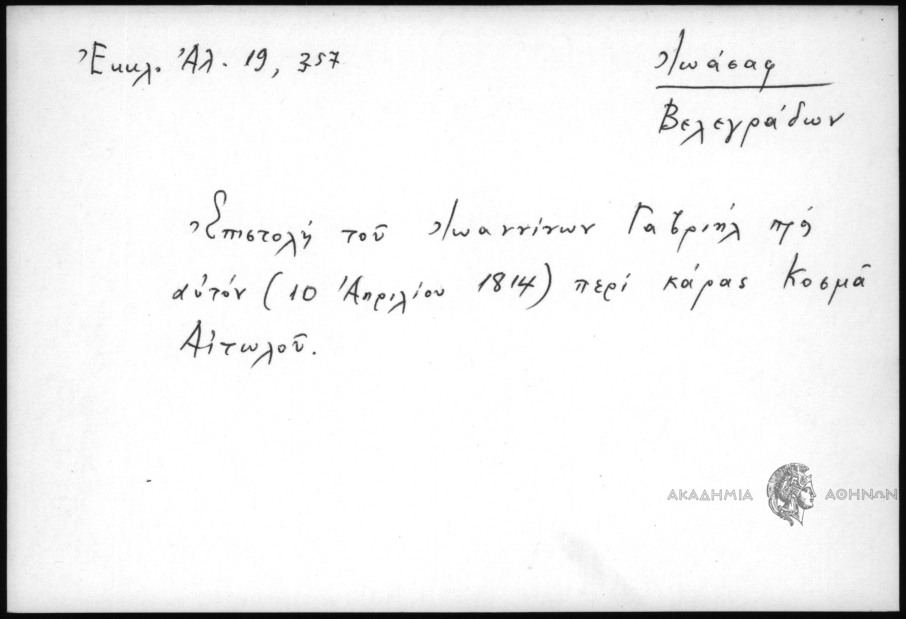 Ἐκκλ. Ἀλ. 19, 357
Ἰωάσαφ
Βελεγράδων
Ἐπιστολή τοῦ Ἰωαννίνων Γαβριήλ πρός
αὐτόν (10 Ἀπριλίου 1814) περί κάρας Κοσμᾶ
Αἰτωλοῦ.
ΑΚΑΔΗΜΙΑ ΑΘΗΝΩΝ